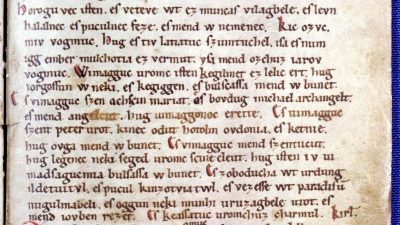 horogu vec isten. es veteve wt ez muncas vilagbele. es levn
halalnec es puculnec feze. es mend w nemenec. Kic ozvc.
miv vogmuc. Hug es tiv latiatuv szumtuchel. isa es num
igg ember mulchotia ez vermut. ysa mend ozchuz iarov
vogmuc. Wimagguc uromv isten kegilmet ez lelic ert. hug
iorgossun w neki. es kegiggen. es bulsassa mend w bunet.
Es vimagguc szen achsin mariat. es bovdug michael archangelt.
es mend angelcut. hug uimaggonoc erette. Es uimagguc
szent peter urot. kinec odut hotolm ovdonia. es ketnie.
hug ovga mend w bunet. Es vimagguc mend szentucut.
hug legenec neki seged uromc scine eleut. hug isten iv ui
madsagucmia bulsassa w bunet. Es zoboducha wt urdung
ildetuitul. es pucul kinzotviatvl. es vezesse wt paradisu
nugulmabeli. es oggun neki munhi uruzagbele utot. es
mend iovben rezet. Es keassatuc uromchuz charmul. Kirl.